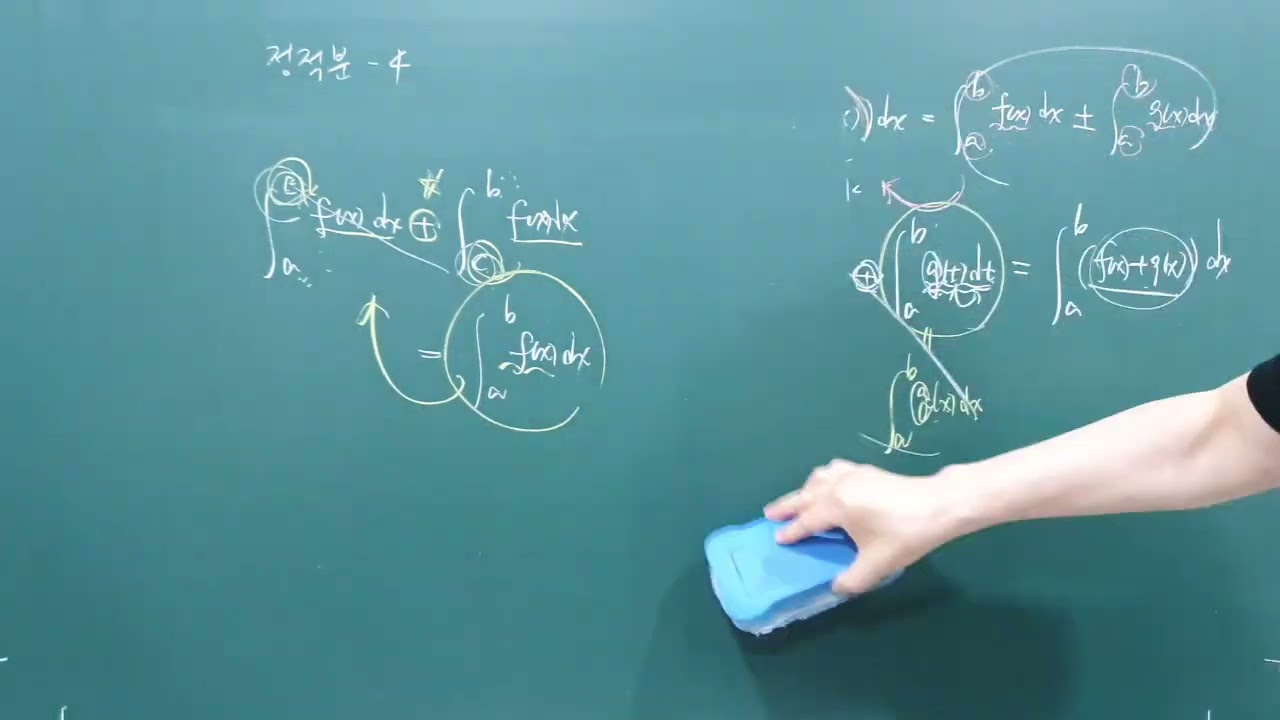 정적분 - 4
∫_a^c f(x) dx ⊕ ∫_c^b f(x)dx
= ∫_a^b f(x) dx
) dx = ∫_a^b f(x) dx ± ∫_a^b g(x) dx
⊕ ∫_a^b g(t) dt = ∫_a^b (f(x)+g(x)) dx
∥
∫_a^b g(x) dx